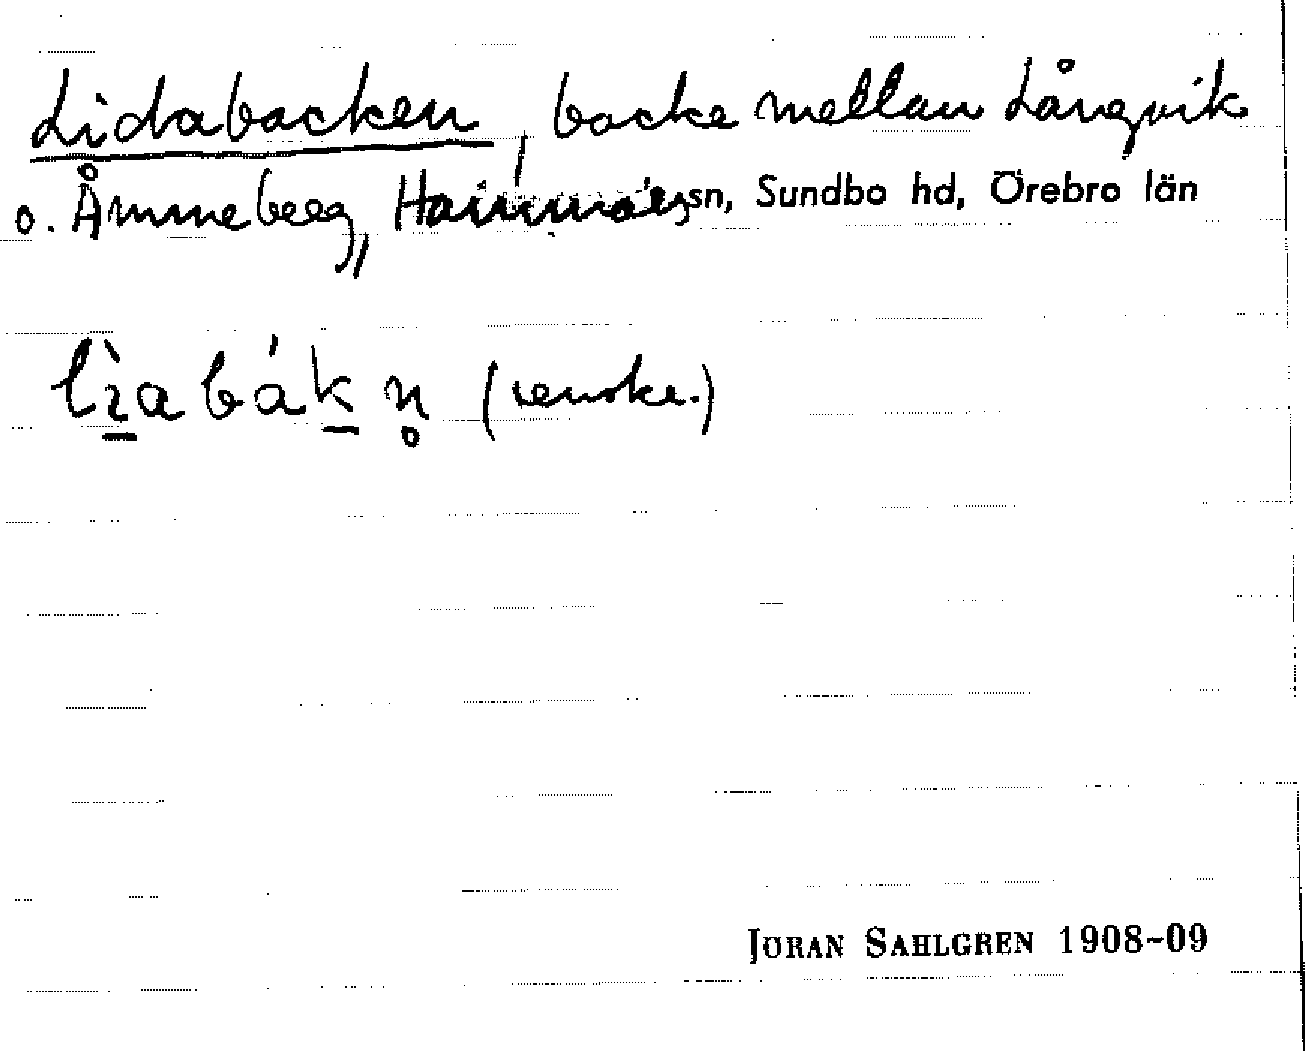 Lidabacken, backe mellan Långvik
o. Åmmeberg, Hammars sn, Sundbo hd, Örebro län
lìɀabák̠n̥
JÖRAN SAHLGREN 1908-09